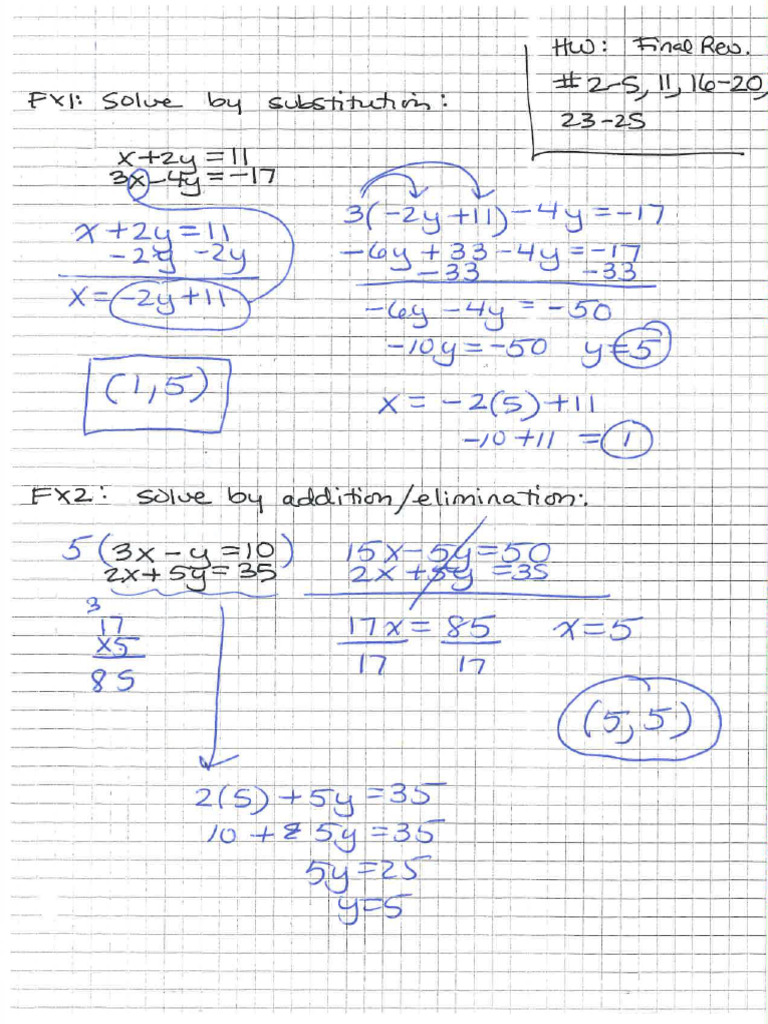 HW: Final Rev.
#2-5, 11, 16-20,
23-25
EX1: Solve by substitution:
x+2y=11
3x-4y=-17
x+2y=11
-2y -2y
x= -2y+11
(1,5)
3(-2y+11)-4y=-17
-6y+33-4y=-17
-33 -33
-6y-4y=-50
-10y=-50 y=5
x=-2(5)+11
-10+11=1
EX2: Solve by addition/elimination:
5(3x-y=10)
2x+5y=35
15x-5y=50
2x+5y=35
17x=85 x=5
17 17
3
17
x5
85
(5,5)
2(5)+5y=35
10+5y=35
5y=25
y=5